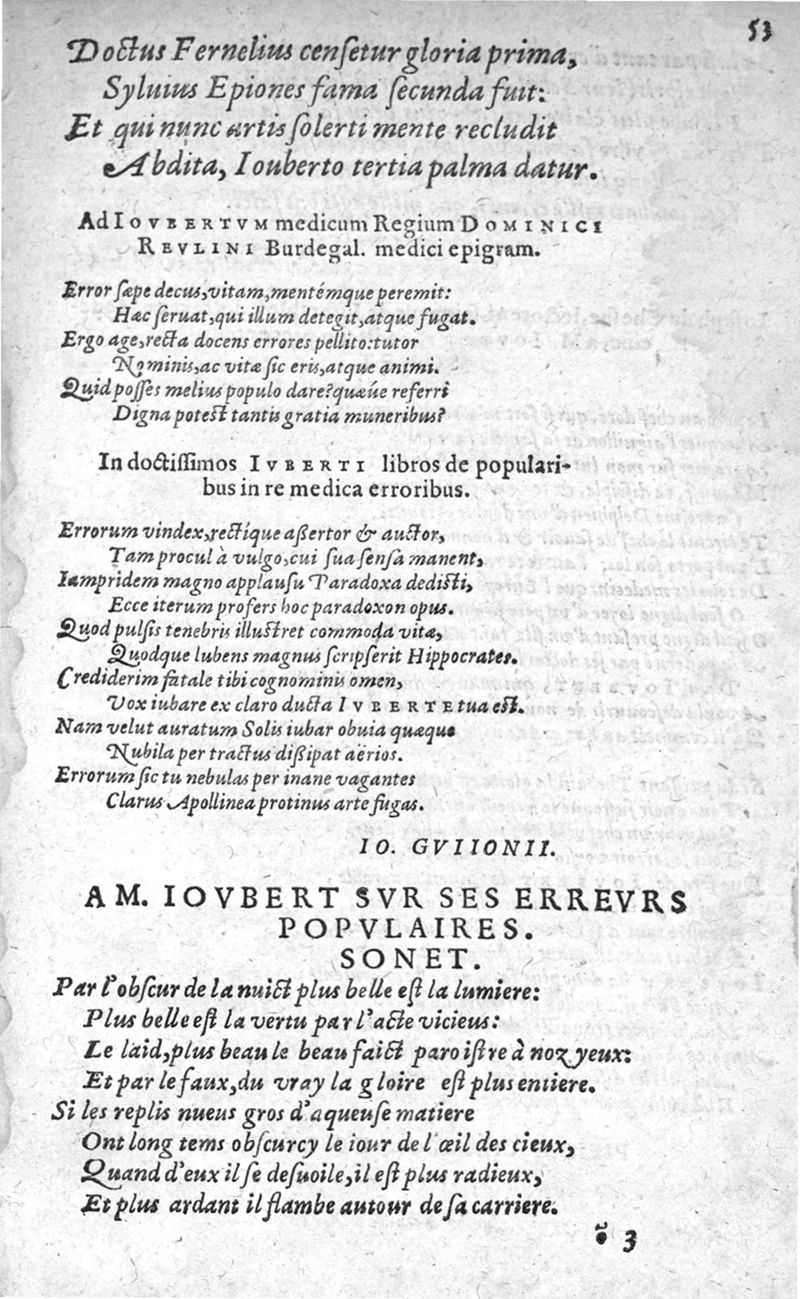 53
Doctus Fernelius censetur gloria prima,
Syluius Epiones fama secunda fuit:
Et qui nunc artis solerti mente recludit
Abdita, Iouberto tertia palma datur.
Ad IOVBERTVM medicum Regium DOMINICI
REVLINI Burdegal. medici epigram.
Error sæpe decus,vitam,mentémque peremit:
Hæc seruat,qui illum detegit,atque fugat.
Ergo age,recta docens errores pellito:tutor
Nominis,ac vitæ sic eris,atque animi.
Quid posses melius populo dare?quæúe referri
Digna potest tantis gratia muneribus?
In doctissimos IVBERTI libros de populari-
bus in re medica erroribus.
Errorum vindex,rectíque aßertor & auctor,
Tam procul à vulgo,cui sua sensa manent,
Iampridem magno applausu Paradoxa dedisti,
Ecce iterum profers hoc paradoxon opus.
Quod pulsis tenebris illustret commoda vitæ,
Quodque lubens magnus scripserit Hippocrates.
Crediderim fatale tibi cognominis omen,
Vox iubare ex claro ducta IVBERTE tua est.
Nam velut auratum Solis iubar obuia quæque
Nubila per tractus dißipat aërios.
Errorum sic tu nebulas per inane vagantes
Clarus Apollinea protinus arte fugas.
IO. GVIIONII.
A M. IOVBERT SVR SES ERREVRS
POPVLAIRES.
SONET.
Par l'obscur de la nuict plus belle est la lumiere:
Plus belle est la vertu par l'acte vicieus:
Le laid,plus beau le beau faict paroistre à noz yeux:
Et par le faux,du vray la gloire est plus entiere.
Si les replis nueus gros d'aqueuse matiere
Ont long tems obscurcy le iour de l'œil des cieux,
Quand d'eux il se desuoile,il est plus radieux,
Et plus ardant il flambe autour de sa carriere.
õ 3